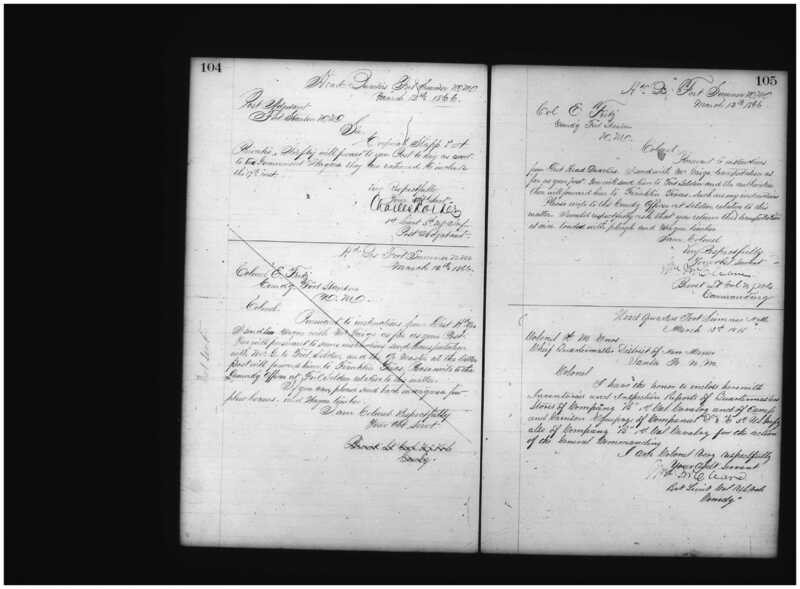 104
Head Quarters Fort Sumner N.M.
March 12th 1866.
Post Adjutant
Fort Stanton N.M.
Sir
Corporal Stapp &
Privates will proceed to your Post to
to Government Wagons they are to
the 17th inst.
Very Respectfully
Your Obt Servt
Charles
1st Lieut 5th Inf
Post Adjutant
Hd Qrs Fort Sumner N.M.
March 12th 1866.
Colonel E. Fritz
Comdg Fort Stanton
N.M.
Colonel.
Pursuant to instructions from Dist Hd Qrs
I send wagon with Mr as far as your Post.
You will pursuant to same instructions send transportation
with Mr G. to Fort Selden, and the Qr Master at the latter
Post will forward him to Franklin Texas. Please write to the
Comdg Officer at Fort Selden relative to this matter.
If you can, please send back in wagons a few
plow beams, and Wagon timber.
I am Colonel Respectfully
Your Obt Servt
Brevet Lt Col
Comdg.
Not sent
105
Hd Qrs Fort Sumner N.M.
March 12th 1866
Col E. Fritz
Comdg Fort Stanton
N.M.
Colonel
Pursuant to instructions
from Dist Head Quarters, I send with Mr transportation as
far as your Post. You will send him to Fort Selden and the authorities
there will forward him to Franklin Texas. Such are my instructions
Please write to the Comdg Officer at Selden relative to this
matter. I would respectfully ask that you return this transportation
at once loaded with plough and Wagon timber
I am Colonel
Very Respectfully
Your Obt Servant
Wm McCleave
Brevet Lt Col U.S. Vols
Commanding
Head Quarters Fort Sumner N.M.
March 13th 1866
Colonel H. M. Enos
Chief Quartermaster District of New Mexico
Santa Fe N.M.
Colonel
I have the honor to inclose herewith
Inventories and Inspection Reports of Quartermasters
Stores of Company "B" 1st Cal Cavalry and of Camp
and Garrison Equipage of Companies
also of Company "B" 1st Cal Cavalry for the action
of the General Commanding
I am Colonel Very respectfully
Your Obdt Servant
Wm McCleave
Bvt Lieut Col U.S. Vols
Comdg